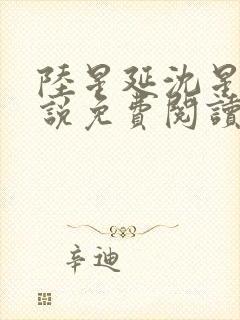 陸星延沈星
說免費閱讀
辛迪